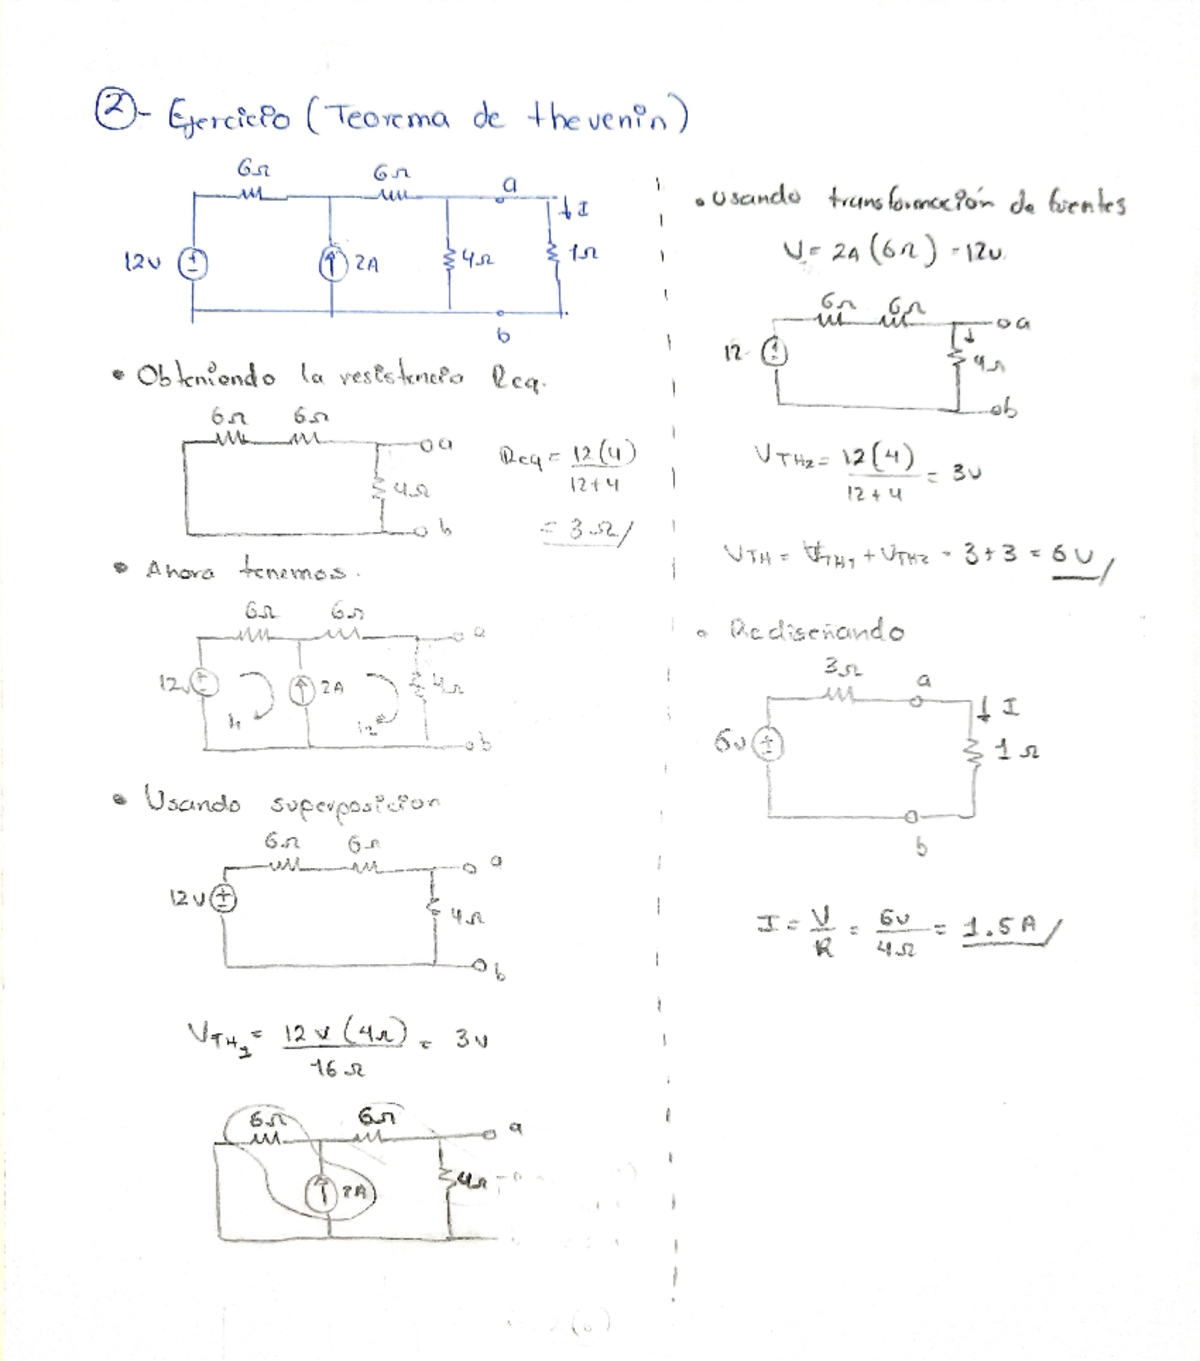 ②- Ejercicio (Teorema de thevenin)
6Ω 6Ω a
↓ I
12v 2A 4Ω 1Ω
b
• Obteniendo la resistencia Req.
6Ω 6Ω
a
4Ω
b
Req = 12(4)
12+4
= 3Ω/
• Ahora tenemos.
6Ω 6Ω
a
12v 2A 4Ω
i1 i2
b
• Usando superposicion
6Ω 6Ω
a
12v
4Ω
b
VTH1 = 12v(4Ω) = 3v
16Ω
6Ω 6Ω
a
2A 4Ω
• Usando transformación de fuentes
V = 2A(6Ω) = 12v.
6Ω 6Ω
a
12
4Ω
b
VTH2 = 12(4) = 3v
12+4
VTH = VTH1 + VTH2 = 3+3 = 6v/
• Rediseñando
3Ω
a
↓ I
6v 1Ω
b
I = V = 6v = 1.5A/
R 4Ω